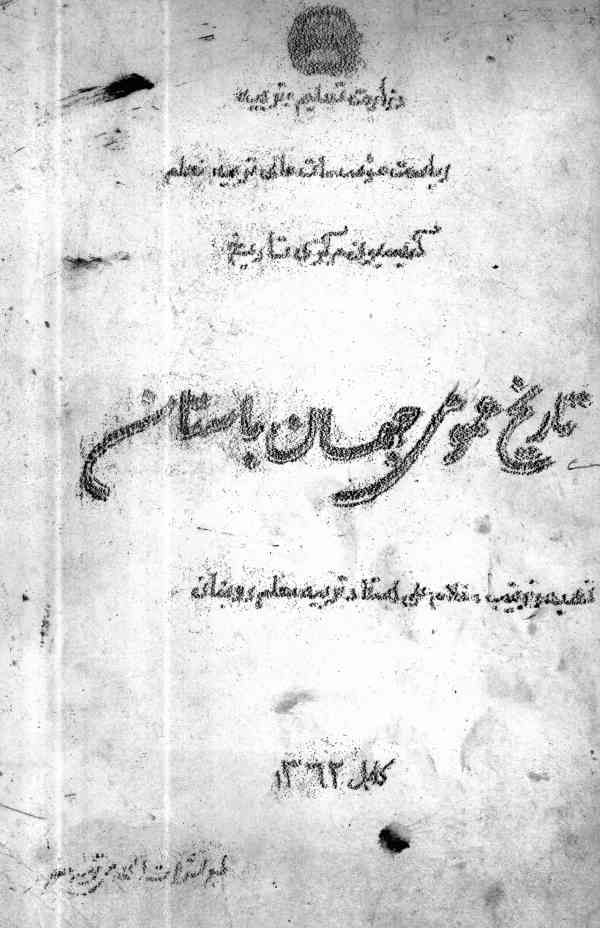 وزارت تعلیم و تربیه
ریاست مؤسسات عالی تربیه معلم
کمیسیون مرکزی تاریخ
تاریخ عمومی جهان باستان
غلام علی استاد تربیه معلم روشان
کابل ۱۳۶۲